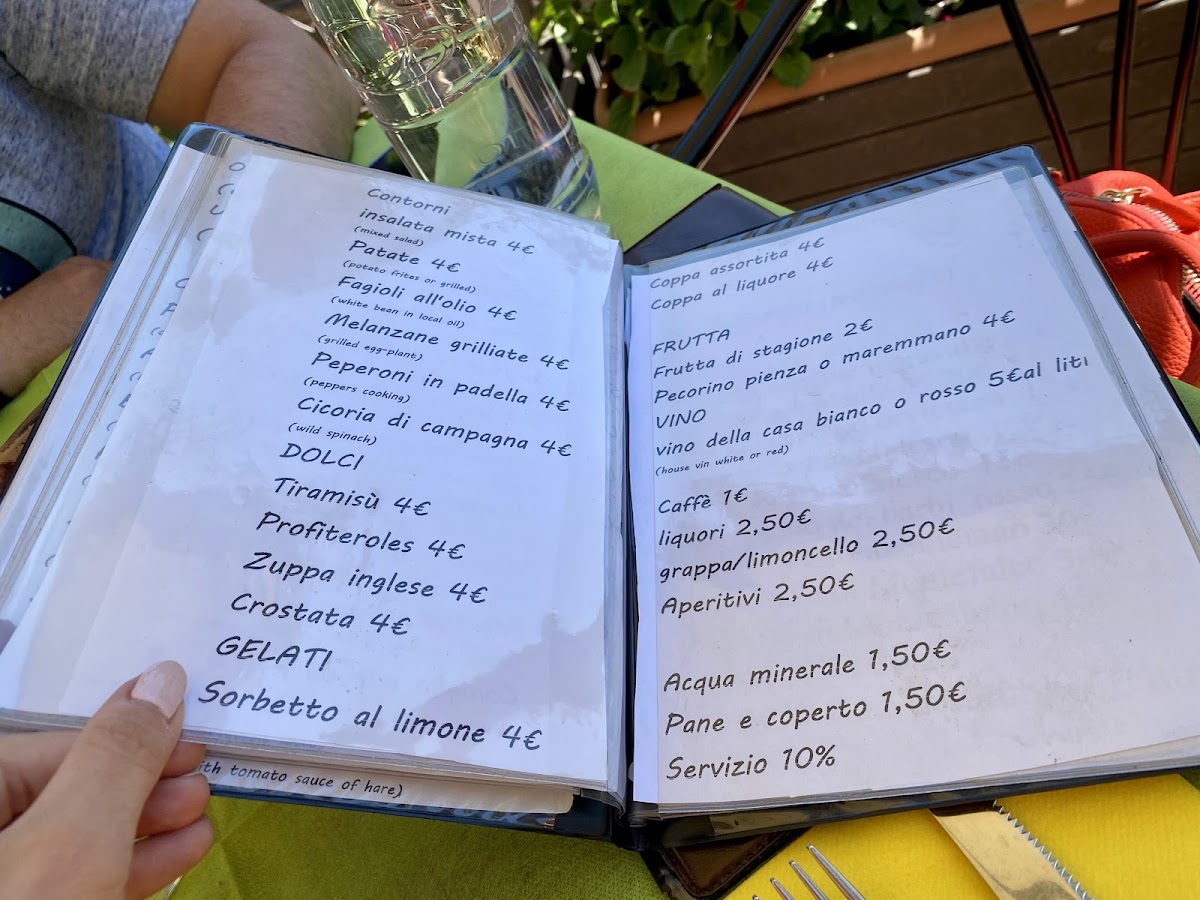 Contorni
insalata mista 4€
(mixed salad)
Patate 4€
(potato frites or grilled)
Fagioli all'olio 4€
(white bean in local oil)
Melanzane grilliate 4€
(grilled egg-plant)
Peperoni in padella 4€
(peppers cooking)
Cicoria di campagna 4€
(wild spinach)
DOLCI
Tiramisù 4€
Profiteroles 4€
Zuppa inglese 4€
Crostata 4€
GELATI
Sorbetto al limone 4€
with tomato sauce of hare)
Coppa assortita 4€
Coppa al liquore 4€
FRUTTA
Frutta di stagione 2€
Pecorino pienza o maremmano 4€
VINO
vino della casa bianco o rosso 5€al liti
(house vin white or red)
Caffè 1€
liquori 2,50€
grappa/limoncello 2,50€
Aperitivi 2,50€
Acqua minerale 1,50€
Pane e coperto 1,50€
Servizio 10%